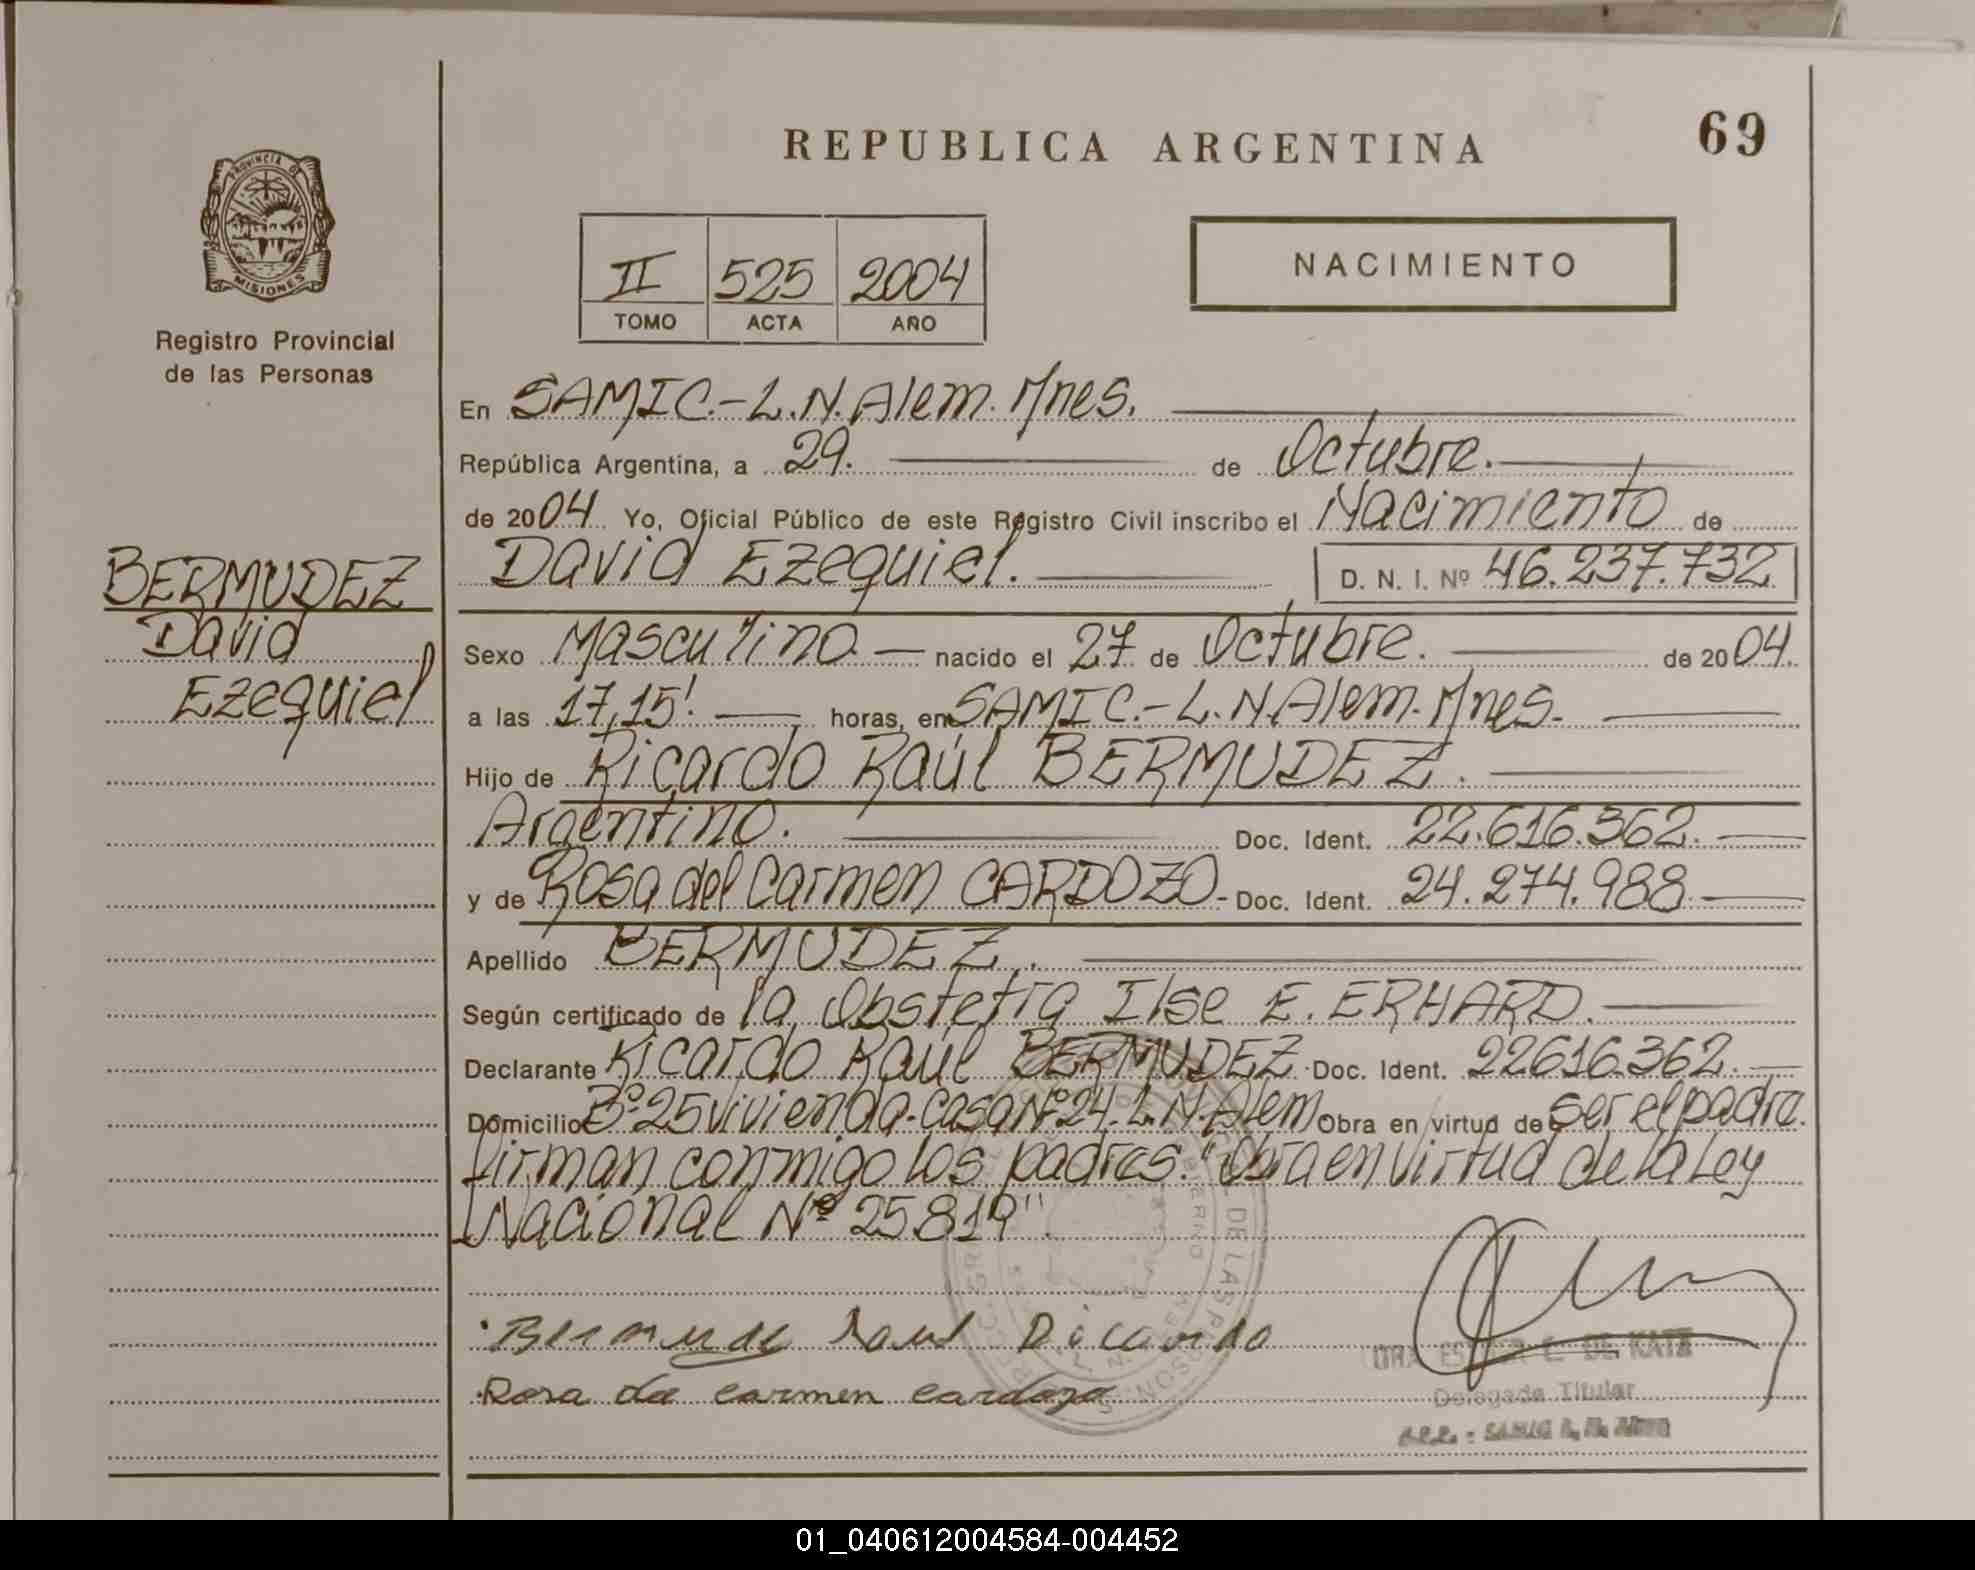 REPUBLICA ARGENTINA
69
PROVINCIA DE
MISIONES
Registro Provincial
de las Personas
II 525 2004
TOMO ACTA AÑO
NACIMIENTO
BERMUDEZ
David
Ezequiel
En SAMIC.-L.N.Alem. Mnes.
República Argentina, a 29. de Octubre.
de 2004 Yo, Oficial Público de este Registro Civil inscribo el Nacimiento de
David Ezequiel. D. N. I. Nº 46.237.732
Sexo Masculino nacido el 27 de Octubre. de 2004.
a las 17,15' horas, en SAMIC.-L.N.Alem. Mnes.
Hijo de Ricardo Raúl BERMUDEZ.
Argentino. Doc. Ident. 22.616.362.
y de Rosa del Carmen CARDOZO- Doc. Ident. 24.274.988
Apellido BERMUDEZ.
Según certificado de la Obstetra Ilse E. ERHARD.
Declarante Ricardo Raúl BERMUDEZ Doc. Ident. 22616.362.
Domicilio Bº 25 vivienda-Casa Nº 24. L.N.Alem Obra en virtud de ser el padre.
Firman conmigo los padres. "Obra en virtud de la Ley
Nacional Nº 25.819"
Bermude Raul Ricardo
Rosa del carmen cardozo
DRA. ESTER C. DE KATZ
Delegada Titular
01_040612004584-004452